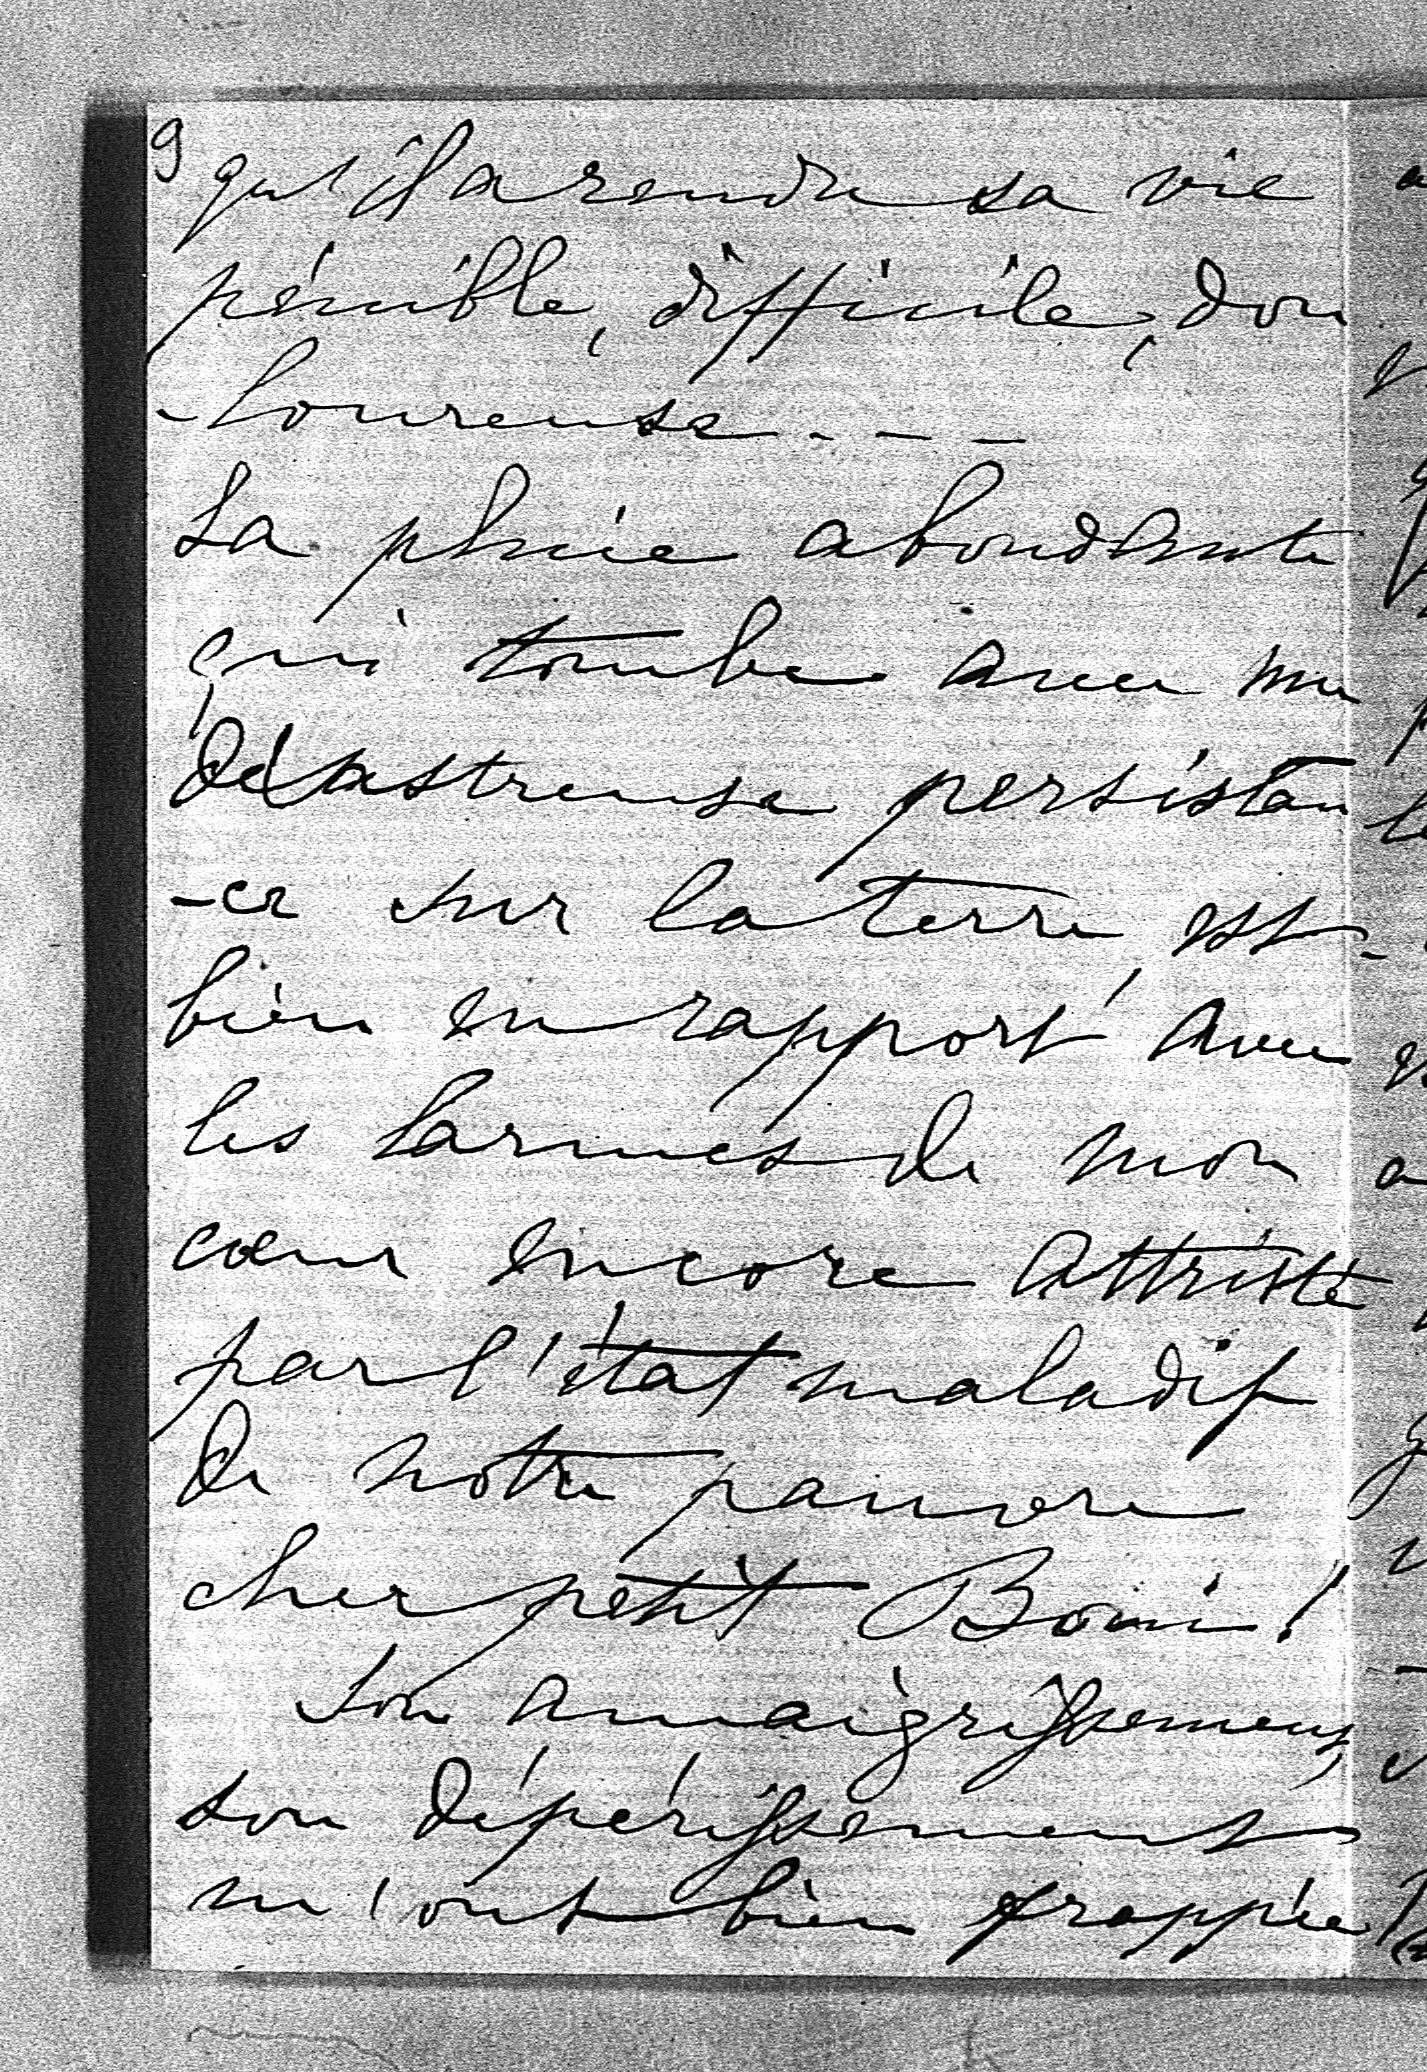 9
qu'il a rendu sa vie
pénible, difficile, dou
-loureuse - - -
La pluie abondante
qui tombe avec une
désastreuse persistan
-ce sur la terre, est
bien en rapport avec
les larmes de mon
cœur encore attristé
par l'état maladif
de notre pauvre
cher petit Bomi !
Son amaigrissement,
son dépérissement
m'ont bien frappée